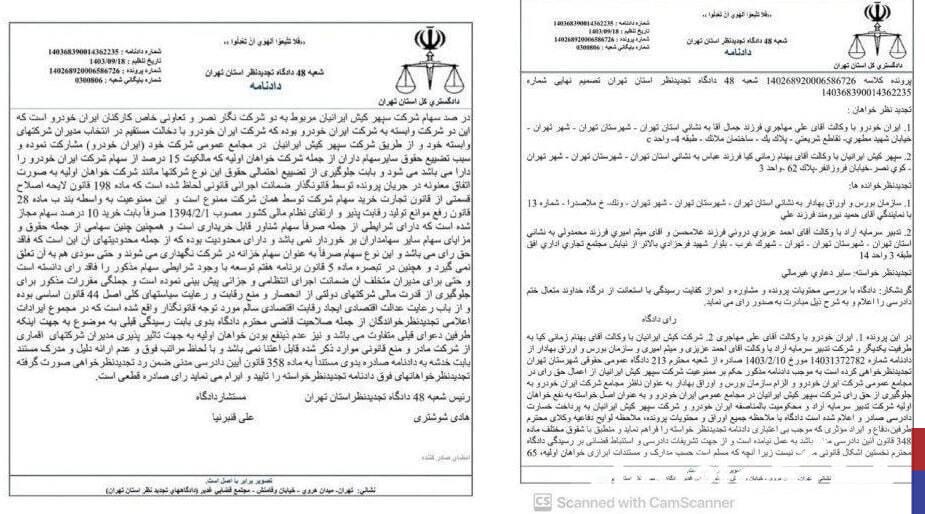 ..«فلا تتبعوا الهوي ان تعدلوا »..
شعبه 48 دادگاه تجدیدنظر استان تهران
دادنامه
شماره دادنامه : 140368390014362235
تاریخ تنظیم : 1403/09/18
شماره پرونده : 140268920006586726
شماره بایگانی شعبه : 0300806
دادگستري کل استان تهران
پرونده کلاسه 140268920006586726 شعبه 48 دادگاه تجدیدنظر استان تهران تصمیم نهایی شماره
140368390014362235
تجدید نظر خواهان :
1. ایران خودرو با وکالت آقای علی مهاجري فرزند جمال آقا به نشانی استان تهران - شهرستان تهران - شهر تهران -
خیابان شهید مطهري- تقاطع شریعتي - پلاك - ساختمان ملانك - طبقه 4- واحد c
2. سپهر کیش ایرانیان با وکالت آقای بهنام زمانی کیا فرزند عباس به نشانی استان تهران - شهرستان تهران - شهر تهران
- کوي نصر-خیابان فروزانفر-پلاك 62 -واحد 3
تجدیدنظرخوانده ها:
1. سازمان بورس و اوراق بهادار به نشانی استان تهران - شهرستان تهران - شهر تهران - ونك- خ ملاصدرا - شماره 13
با نمایندگی آقای حمید نیرومند فرزند علي
2. تدبیر سرمایه آراد با وکالت آقای احمد عزیزي درونی فرزند غلامحسن و آقای میثم امیري فرزند محمدولي به نشاني
استان تهران - شهرستان تهران - تهران - شهرك غرب - بلوار شهید فرحزادي بالاتر از نیایش مجتمع تجاري اداري افق
طبقه 3 واحد 14
تجدیدنظر خواسته: سایر دعاوي غیرمالي
گردشکار: دادگاه با بررسي محتویات پرونده و مشاوره و احراز کفایت رسیدگی با استعانت از درگاه خداوند متعال ختم
دادرسی را اعلام و به شرح ذیل مبادرت به صدور رای می نماید.
رای دادگاه
در این پرونده 1. ایران خودرو با وکالت آقای علی مهاجری 2. شرکت کیش ایرانیان با وکالت آقای بهنام زمانی کیا به
طرفیت یکدیگر و شرکت تدبیر سرمایه آراد با وکالت آقای احمد عزیزی و میثم امیری و سازمان بورس و اوراق بهادار از
دادنامه شماره 14031372782 مورخ 1403/2/10 صادره از شعبه محترم 213 دادگاه عمومی حقوقی شهرستان تهران
تجدیدنظرخواهی کرده است به موجب دادنامه مذکور حکم بر ممنوعیت شرکت سپهر کیش ایرانیان از اعمال حق رای در
مجامع عمومی شرکت ایران خودرو و الزام سازمان بورس و اوراق بهادار به عنوان ناظر مجامع شرکت ایران خودرو به
جلوگیری از حق رای شرکت سپهر کیش ایرانیان در مجامع عمومی ایران خودرو و به عنوان اصل خواسته به نفع خواهان
اولیه شرکت تدبیر سرمایه آراد و محکومیت بالمناصفه ایران خودرو و شرکت سپهر کیش ایرانیان به پرداخت خسارت
دادرسی صادر و اعلام شده است دادگاه با ملاحظه جمیع اوراق و محتویات پرونده، ملاحظه لوایح دفاعیه وکلای محترم
طرفین،دفاع و ایراد مؤثری که موجب بی اعتباری دادنامه تجدیدنظر خواسته را فراهم نماید و منطبق با شقوق مختلف ماده
348 قانون آئین دادرسی باشد به عمل نیامده است و از جهت تشریفات دادرسی و استنباط قضائی بر رسیدگی دادگاه
محترم نخستین اشکال قانونی نیست زیرا آنچه که مسلم است حسب مدارک و مستندات ابرازی خواهان اولیه، 65
تصویر برابر با اصل است.
نشانی: تهران- میدان هروي - خیابان
CS Scanned with CamScanner
..«فلا تتبعوا الهوي ان تعدلوا »..
شعبه 48 دادگاه تجدیدنظر استان تهران
دادنامه
شماره دادنامه : 140368390014362235
تاریخ تنظیم : 1403/09/18
شماره پرونده : 140268920006586726
شماره بایگانی شعبه : 0300806
دادگستري کل استان تهران
در صد سهام شرکت سپهر کیش ایرانیان مربوط به دو شرکت نگار نصر و تعاونی خاص کارکنان ایران خودرو است که
این دو شرکت وابسته به شرکت ایران خودرو بوده که شرکت ایران خودرو با دخالت مستقیم در انتخاب مدیران شرکتهای
وابسته خود و از طریق شرکت سپهر کیش ایرانیان در مجامع عمومی شرکت خود (ایران خودرو) مشارکت نموده و
سبب تضییع حقوق سایرسهام داران از جمله شرکت خواهان اولیه که مالکیت 15 درصد از سهام شرکت ایران خودرو را
دارا می باشد می شود و بابت جلوگیری از تضییع احتمالی حقوق این نوع شرکتها مانند شرکت خواهان اولیه به صورت
اتفاق معنونه در جریان پرونده توسط قانونگذار ضمانت اجرائی قانونی لحاظ شده است که ماده 198 قانون لایحه اصلاح
قسمتی از قانون تجارت خرید سهام شرکت توسط همان شرکت ممنوع است و این ممنوعیت به واسطه بند ب ماده 28
قانون رفع موانع تولید رقابت پذیر و ارتقای نظام مالی کشور مصوب 1394/2/1 صرفاً بابت خرید 10 درصد سهام مجاز
شده است که دارای شرایطی از جمله صرفاً سهام شناور قابل خریداری است و همچنین چنین سهامی از جمله حقوق و
مزایای سهام سایر سهامداران بر خوردار نمی باشد و دارای محدودیت بوده که از جمله محدودیتهای آن این است که فاقد
حق رای می باشد و این نوع سهام صرفاً به عنوان سهام خزانه در شرکت نگهداری می شوند و حتی سودی هم به آن تعلق
نمی گیرد و هچنین در تبصره ماده 5 قانون برنامه هفتم توسعه با وجود شرایطی سهام مذکور را فاقد رای دانسته است
و حتی برای مدیران متخلف آن ضمانت اجرای انتظامی و جزائی پیش بینی نموده است و جملگی مقررات مذکور برای
جلوگیری از قدرت مالی شرکتهای دولتی از انحصار و منع رقابت و رعایت سیاستهای کلی اصل 44 قانون اساسی بوده
و از باب رعایت عدالت اقتصادی ایجاد رقابت اقتصادی سالم مورد توجه قانونگذار واقع شده است که در مجموع ایرادات
اعلامی تجدیدنظرخواندگان از جمله صلاحیت قاضی محترم دادگاه بدوی بابت رسیدگی قبلی به موضوع به جهت اینکه
طرفین دعوای قبلی متفاوت می باشد و نیز عدم ذینفع بودن خواهان اولیه به جهت تاثیر پذیری مدیران شرکتهای اقماری
از شرکت مادر و منع قانونی موارد ذکر شده قابل اعتنا نمی باشد و با لحاظ مراتب فوق و عدم ارائه دلیل و مدرک مستند
بابت خدشه به دادنامه صادره بدوی مستنداً به ماده 358 قانون آیین دادرسی مدنی ضمن رد تجدیدنظرخواهی صورت گرفته
تجدیدنظرخواهانهای فوق دادنامه تجدیدنظرخواسته را تایید و ابرام می نماید رای صادره قطعی است.
رئیس شعبه 48 دادگاه تجدیدنظراستان تهران مستشاردادگاه
هادی شوشتری علی قنبرنیا
امضای صادر کننده
تصویر برابر با اصل است.
نشانی: تهران- میدان هروي - خیابان وفامنش - مجتمع قضایی غدیر (دادگاههای تجدید نظر استان تهران)